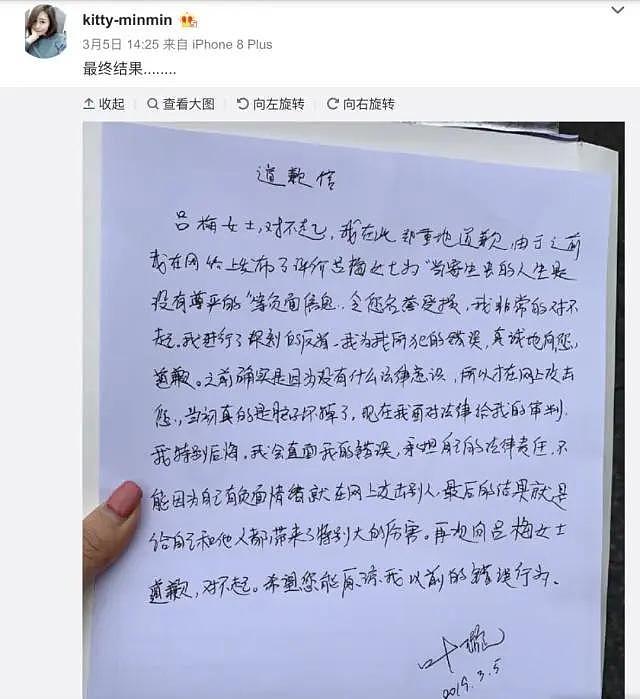 kitty-minmin
3月5日 14:25 来自 iPhone 8 Plus
最终结果........
收起 查看大图 向左旋转 向右旋转
道歉信
吕梅女士,对不起,我在此郑重地道歉,由于之前
我在网络上发布了评价吕梅女士为"当寄生虫的人生是
没有尊严的"等负面信息,令您名誉受损,我非常的对不
起。我进行了深刻的反省,我为我所犯的错误,真诚地向您,
道歉。之前确实是因为没有什么法律意识,所以才在网上攻击
您,当初真的是脑子坏掉了,现在我面对法律给我的审判,
我特别后悔,我会直面我的错误,承担自己的法律责任,不
能因为自己有负面情绪就在网上攻击别人,最后的结果就是
给自己和他人都带来了特别大的厉害。再次向吕梅女士
道歉,对不起。希望您能原谅我以前的错误行为。
叶璇
2019.3.5